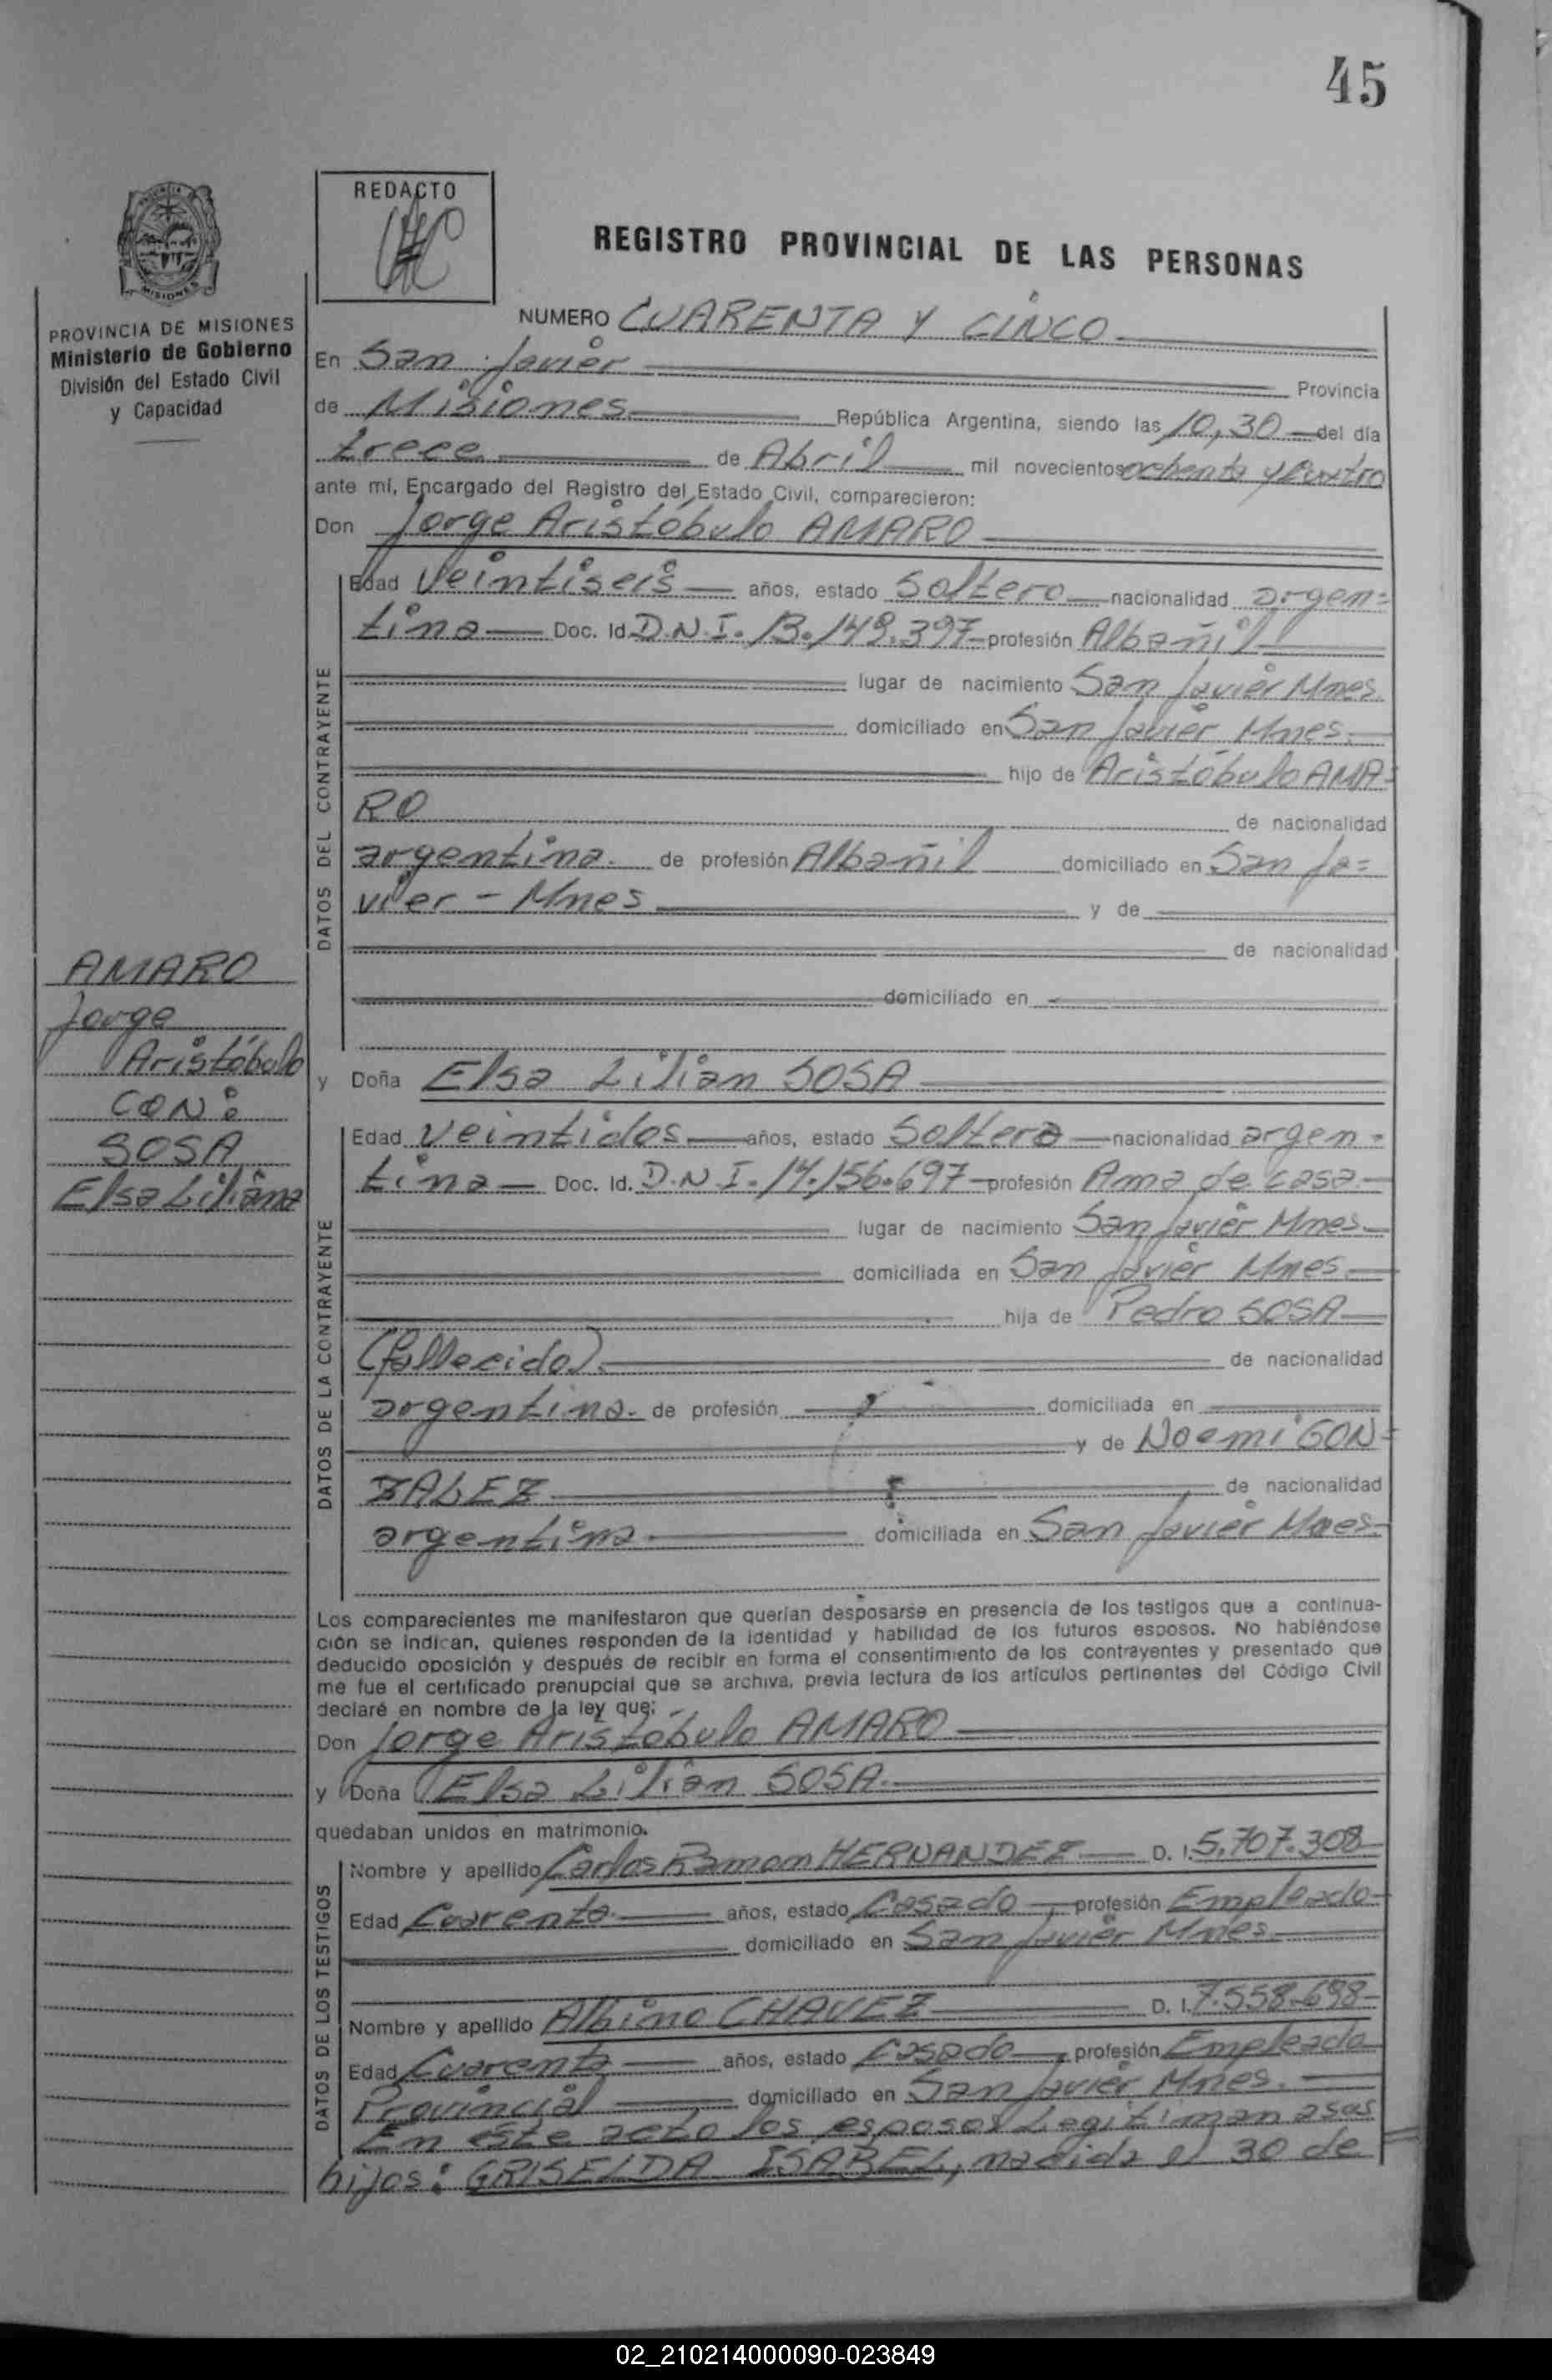 45
REDACTO
REGISTRO PROVINCIAL DE LAS PERSONAS
MISIONES
PROVINCIA DE MISIONES
Ministerio de Gobierno
División del Estado Civil
y Capacidad
NUMERO CUARENTA Y CINCO
En San Javier Provincia
de Misiones República Argentina, siendo las 10,30 del día
trece de Abril mil novecientos ochenta y cuatro
ante mí, Encargado del Registro del Estado Civil, comparecieron:
Don Jorge Aristóbulo AMARO
DATOS DEL CONTRAYENTE
Edad Veintiseis años, estado Soltero nacionalidad argen=
tina Doc. Id. D.N.I. 13.149.397 profesión Albañil
lugar de nacimiento San Javier Mnes.
domiciliado en San Javier Mnes.
hijo de Aristóbulo AMA=
RO de nacionalidad
argentina. de profesión Albañil domiciliado en San Ja=
vier - Mnes y de
de nacionalidad
domiciliado en
AMARO
Jorge
Aristóbulo
CON:
SOSA
Elsa Liliana
y Doña Elsa Lilian SOSA
DATOS DE LA CONTRAYENTE
Edad Veintidos años, estado Soltera nacionalidad argen=
tina Doc. Id. D.N.I. 14.156.697 profesión Ama de casa.
lugar de nacimiento San Javier Mnes.
domiciliada en San Javier Mnes.
hija de Pedro SOSA
(fallecido) de nacionalidad
argentina. de profesión domiciliada en
y de Noemi GON=
ZALEZ de nacionalidad
argentina domiciliada en San Javier Mnes
Los comparecientes me manifestaron que querían desposarse en presencia de los testigos que a continua-
ción se indican, quienes responden de la identidad y habilidad de los futuros esposos. No habiéndose
deducido oposición y después de recibir en forma el consentimiento de los contrayentes y presentado que
me fue el certificado prenupcial que se archiva, previa lectura de los artículos pertinentes del Código Civil
declaré en nombre de la ley que:
Don Jorge Aristóbulo AMARO
y Doña Elsa Lilian SOSA.
quedaban unidos en matrimonio.
DATOS DE LOS TESTIGOS
Nombre y apellido Carlos Ramon HERNANDEZ D. I. 5.707.308
Edad Cuarenta años, estado Casado profesión Empleado
domiciliado en San Javier Mnes.
Nombre y apellido Albino CHAVEZ D. I. 7.558.698
Edad Cuarenta años, estado Casado profesión Empleado
Provincial domiciliado en San Javier Mnes.
En este acto los esposos Legitiman a sus
hijos: GRISELDA ISABEL, nacida el 30 de
02_210214000090-023849